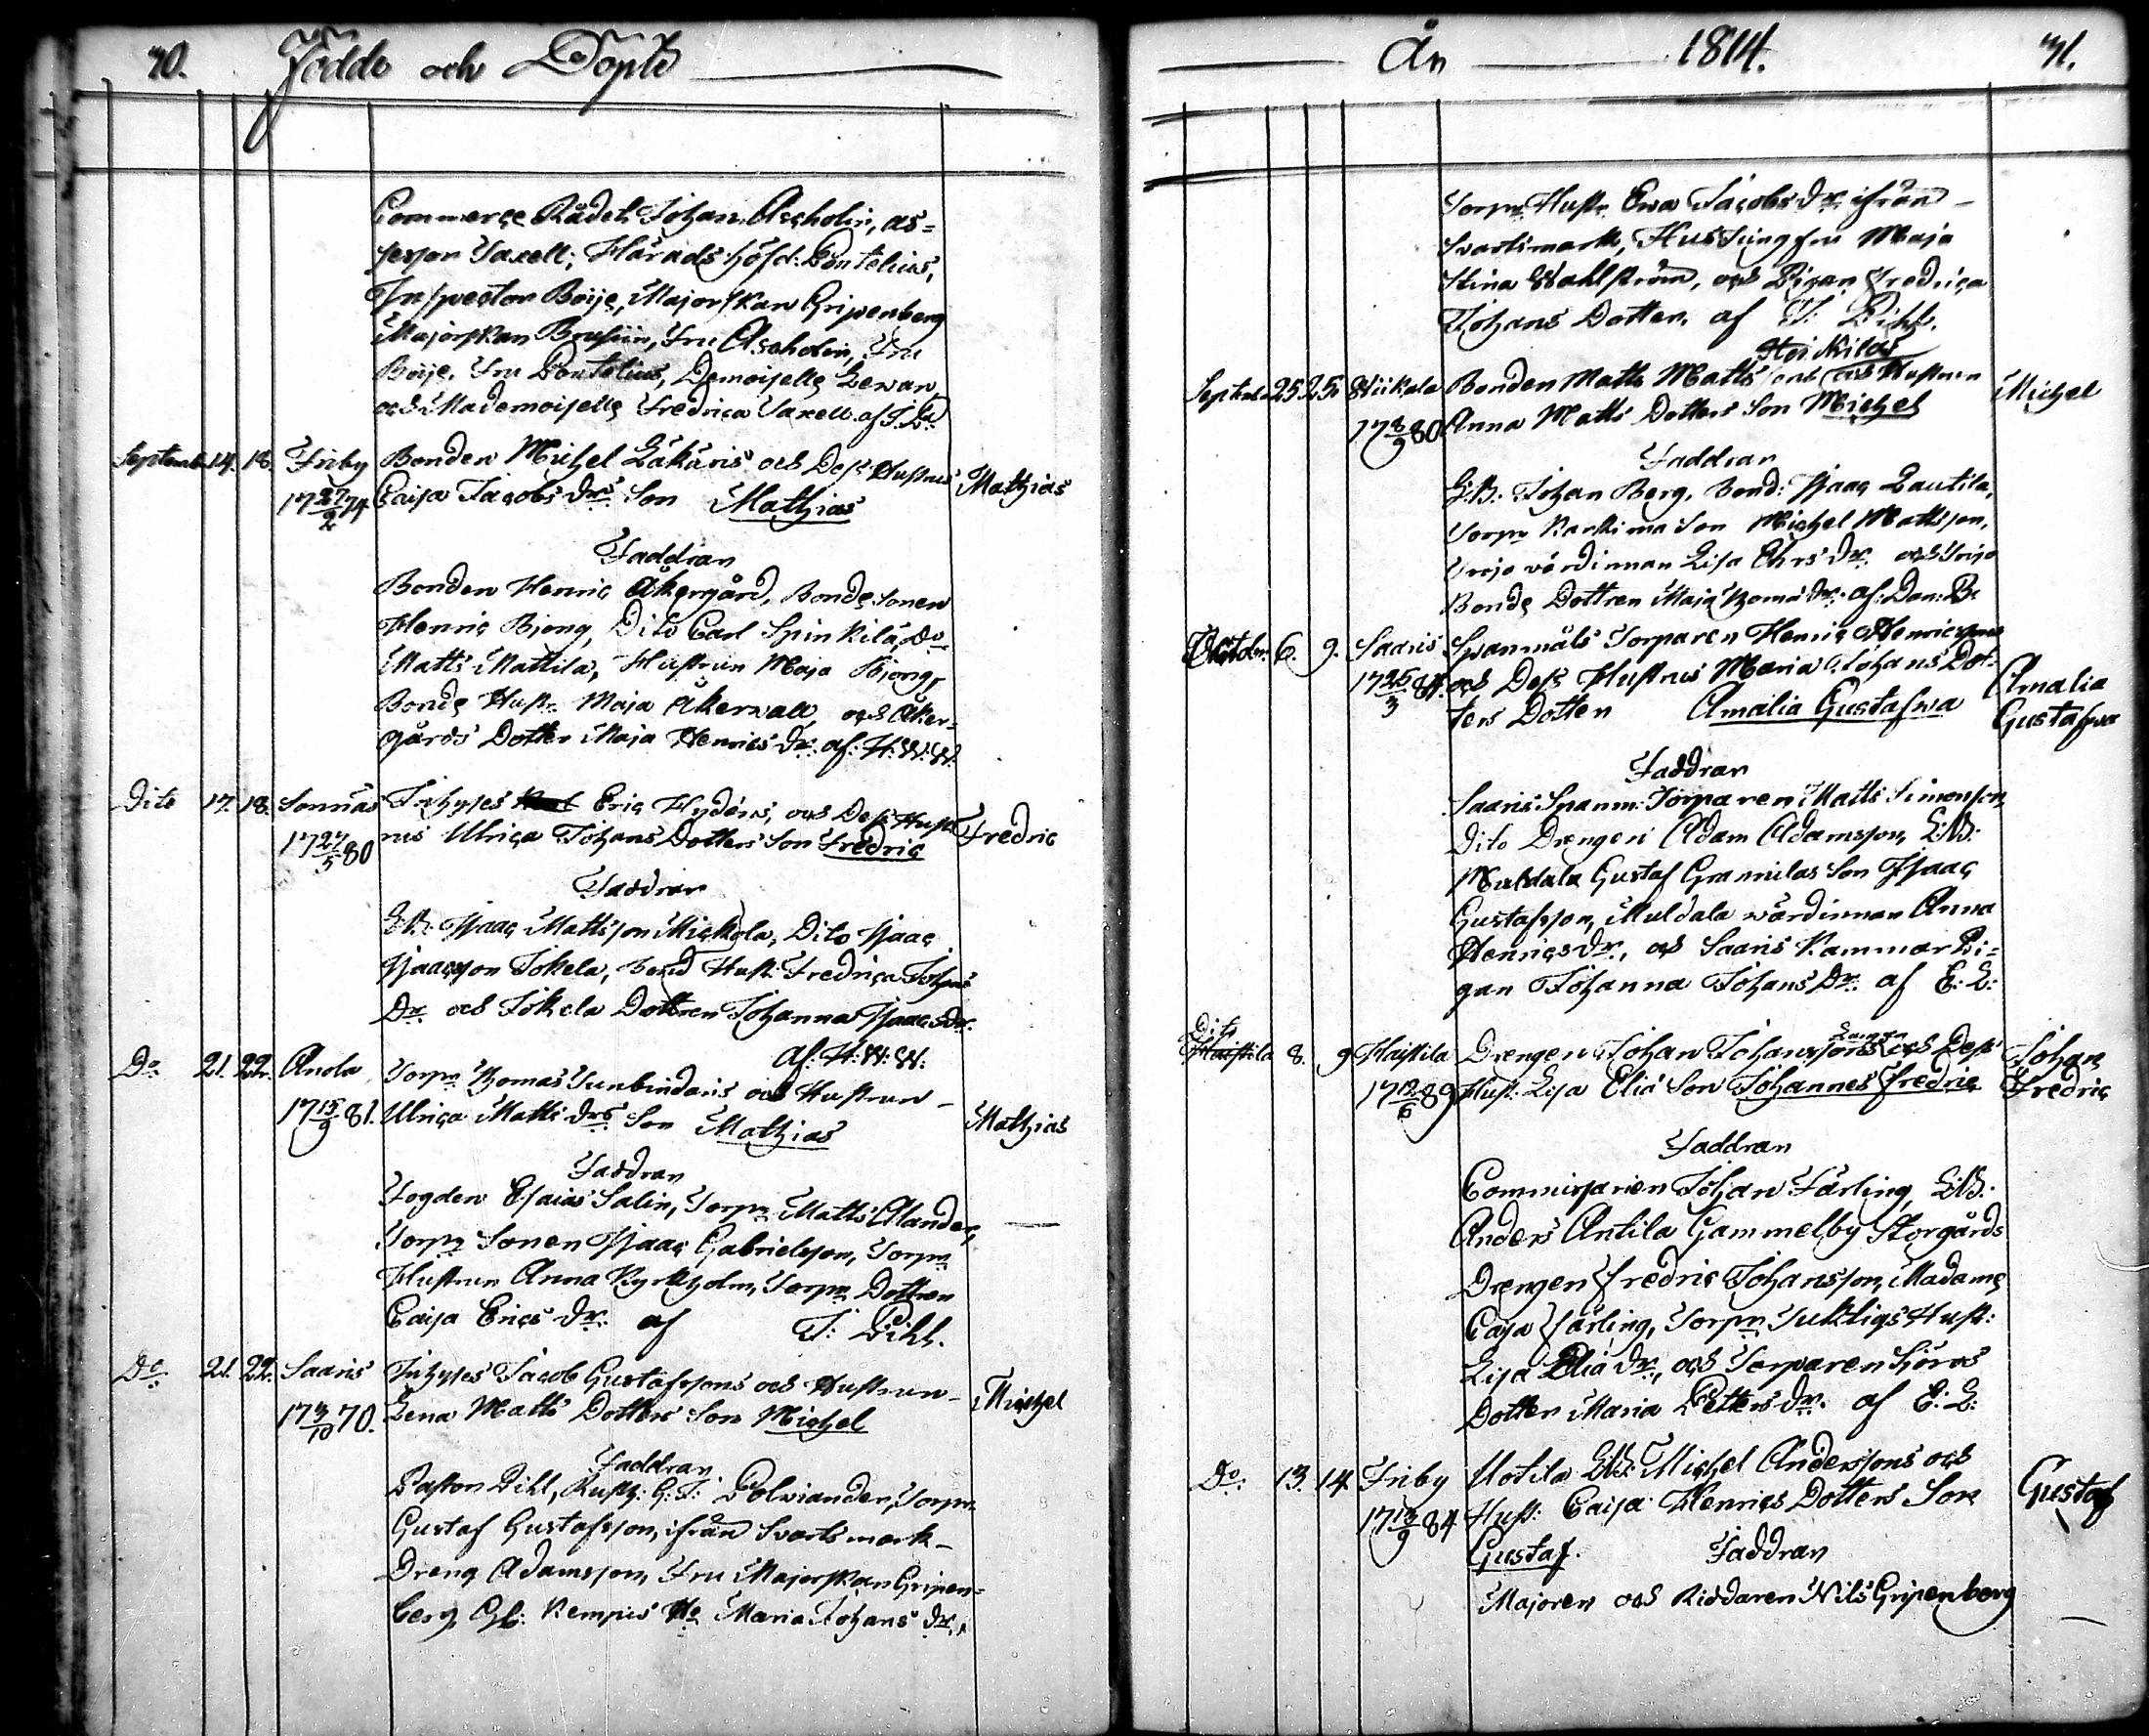 70. Födde och Döpte
Commerçe Rådet Johan Ascholin, as=
sessor Taxell, Härads höfd: Pontelius,
Inspector Böije, Majorskan Gripenberg
Majorskan Brusiin, Fru Ascholin, Fru
Böije, Fru Pontelius, Demoiselle Lewan
och Mademoiselle Fredrica Taxell af
Septemb. 14. 18. Friby Bonden Michel Zakaris och Dess Hustrus Mathias
17 27/2 74 Caisa Jacobs drs Son Mathias
Faddrar
Bonden Henric Åkergård, Bonde Sonen
Henric Bjong, Dito Carl Spinkilä, Do
Matts Mattila, Hustrun Maja Bjong,
Bonde Hustr. Maja Åkerwall, och Åker=
gårds Dotter Maja Henrics dr. af: H: W: W:
Dito 17. 18. Sonnäs Inhyses Eric Hydéns, och Dess Hust
17 27/5 80 rus Ulrica Johans Dotters Son Fredric Fredric
Faddrar
L:B: Isaac Mattsson Mickola, Dito Isaac
Isaacsson Jokela, Bond Hust: Fredrica Johans
Dr. och Jokela Dottren Johanna Isaacs dr.
af: H: W: W:
Do 21. 22. Anola Torpr Thomas Tunbindaris och Hustrun
17 15/9 81. Ulrica Matts drs Son Mathias Mathias
Faddrar
Fogden Esaias Salin, Torpr Matts Alander,
Torpr Sonen Isaac Gabrielsson, Torpr
Hustrun Anna Kyrkholm, Torpr Dottren
Caisa Erics dr. af J: Pihl.
Do 21. 22. Saaris Inhyses Jacob Gustafssons och Hustrun
17 3/10 70. Lena Matts Dotters Son Michel Michel
Faddrar
Pastor Pihl, Rusth: G: J: Polviander, Torpr
Gustaf Gustafsson, ifrån Svartsmark
Dreng Adamsson, Fru Majorskan Gripen=
berg, Gl: Kempis Ho Maria Johans dr.,
År 1814. 71.
Torpr Hustr. Ewa Jacobs dr. ifrån
Svartsmark, Hus Jungfru Maja
Stina Wahlström, och Pigan Fredrica
Johans Dotter. af J: Pihl.
Heikilas
Septemb. 25 25 Bonden Matts Matts och Hustrun Michel
17 8/9 80 Anna Matts Dotters Son Michel
Faddrar
L:B: Johan Berg, Bond: Isaac Lautila,
Torpr Son Michel Mattsson,
wärdinnan Lisa Ehrs dr. och
Bonde Dottren Maja dr. af: Dan: B:
Octobr. 6. 9. Saaris Spanmåls Torparen Henric Henricssons
17 25/3 84. och Dess Hustrus Maria Johans Dot=
ters Dotter Amalia Gustafwa Amalia
Gustafwa
Faddrar
Saaris Spanm: Torparen Matts Simonsson,
Dito Drengen Adam Adamsson, L:B:
Muldala Gustaf Granvilas Son Isaac
Gustafsson, Muldala wärdinnan Anna
Henrics dr., och Saaris Kammar Pi=
gan Johanna Johans Dr. af E: L:
Dito 8. 9 Haistila Drengen Johan Johanssons och Dess Johan
17 12/6 89 Hust: Lisa Eliæ Son Johannes Fredric Fredric
Faddrar
Commissarien Johan Färling, L:B:
Anders Antila Gammelby Storgårds
Drengen Fredric Johansson, Madame
Caisa Färling, Torpr Hust:
Lisa Eliæ dr., och Torparen
Dotter Maria Petters dr. af E: L:
Do 13. 14 Friby Uotila L:B: Michel Anderssons och
17 13/9 84 Hust: Caisa Henrics Dotters Son Gustaf
Gustaf. Faddrar
Majoren och Riddaren Nils Gripenberg